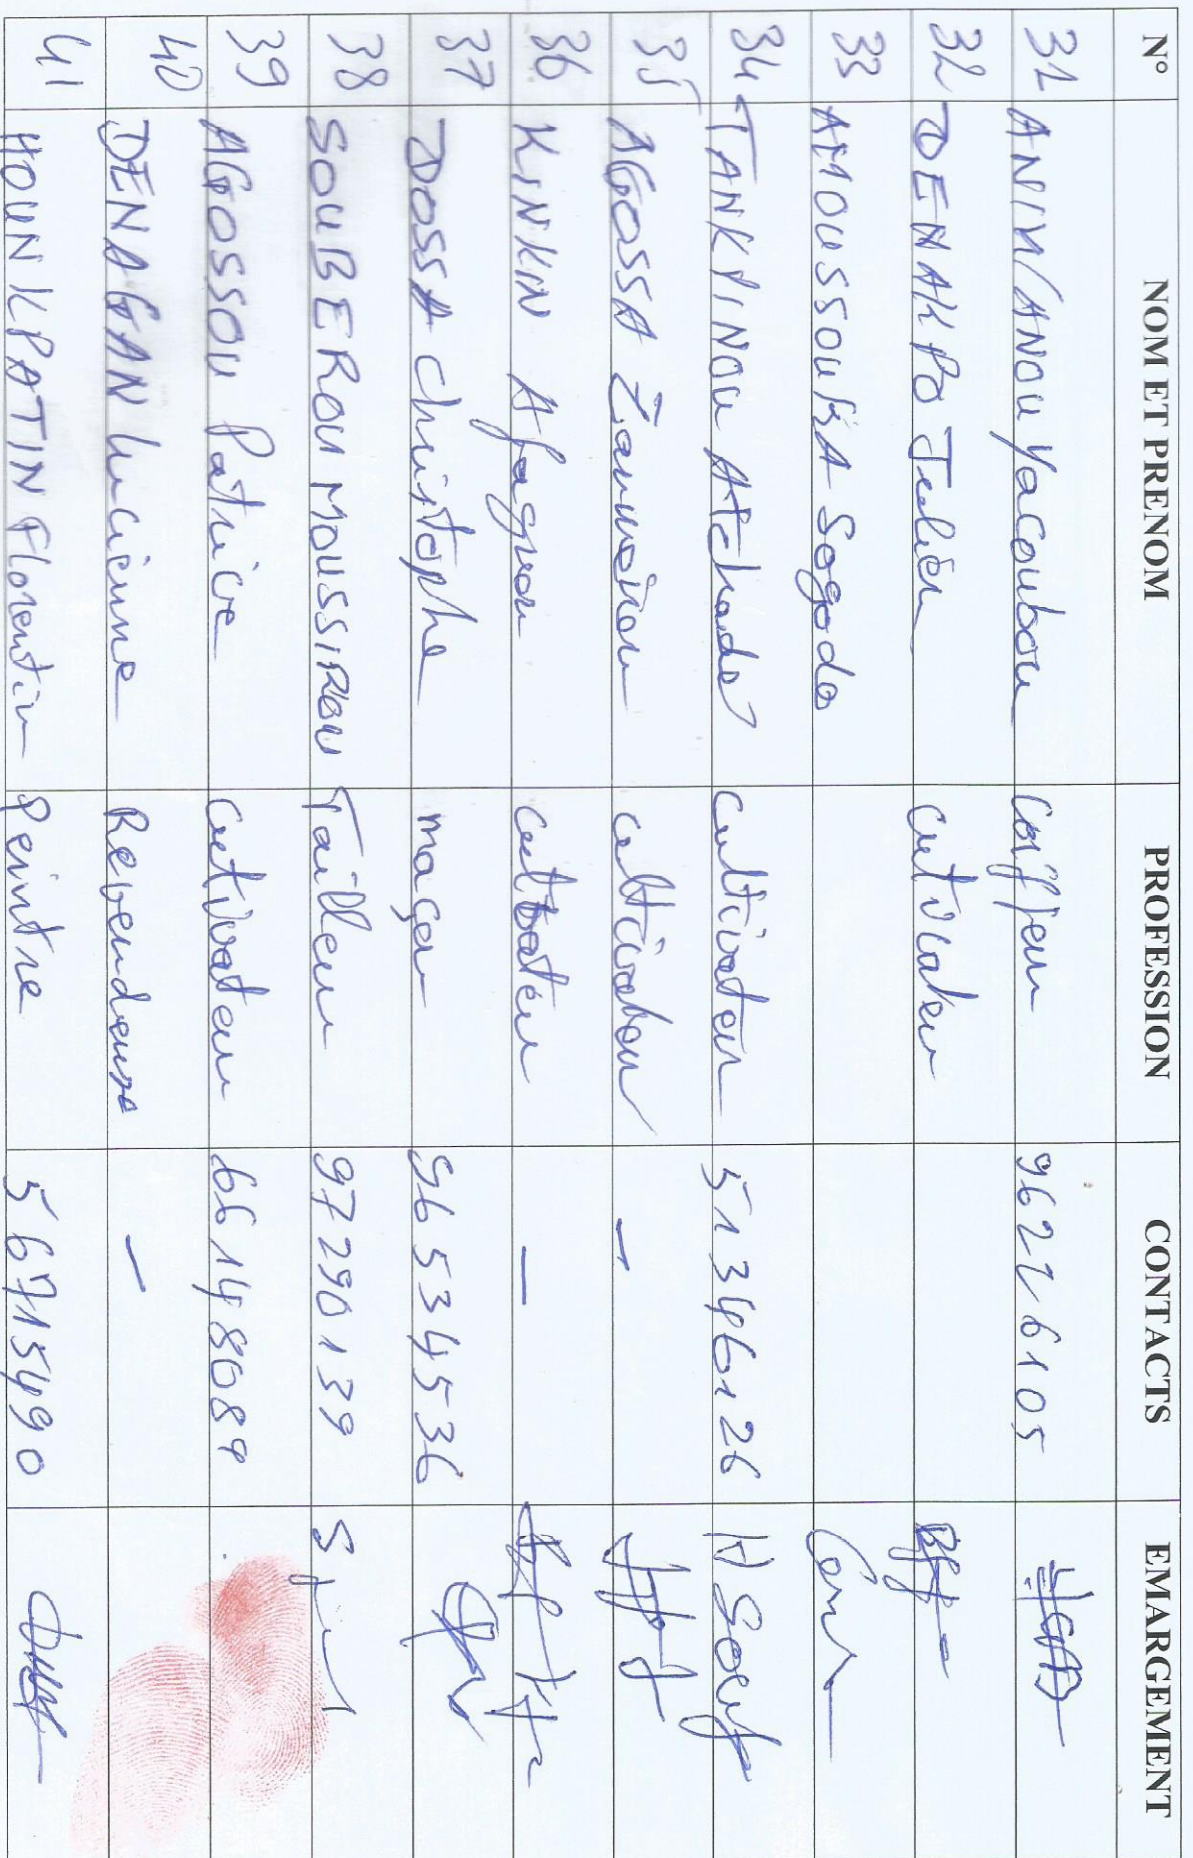 N° NOM ET PRENOM PROFESSION CONTACTS EMARGEMENT
31 ANIM/ANOU Yacoubou Coiffeur 96226105
32 DENAKPO Julien Cultivateur
33 AMOUSSOUGA Sogodo
34 TANKPINOU Atchadé Cultivateur 51346126
35 AGOSSA Zannou Cultivateur —
36 KINKIN Afagnon Cultivateur —
37 DOSSA Christophe maçon 96534536
38 SOUBEROU MOUSSIROU Tailleu 97290139
39 AGOSSOU Patrice Cultivateur 66148089
40 DENAGAN Lucienne Revendeuse —
41 HOUNKPATIN Florentin Peintre 56715490